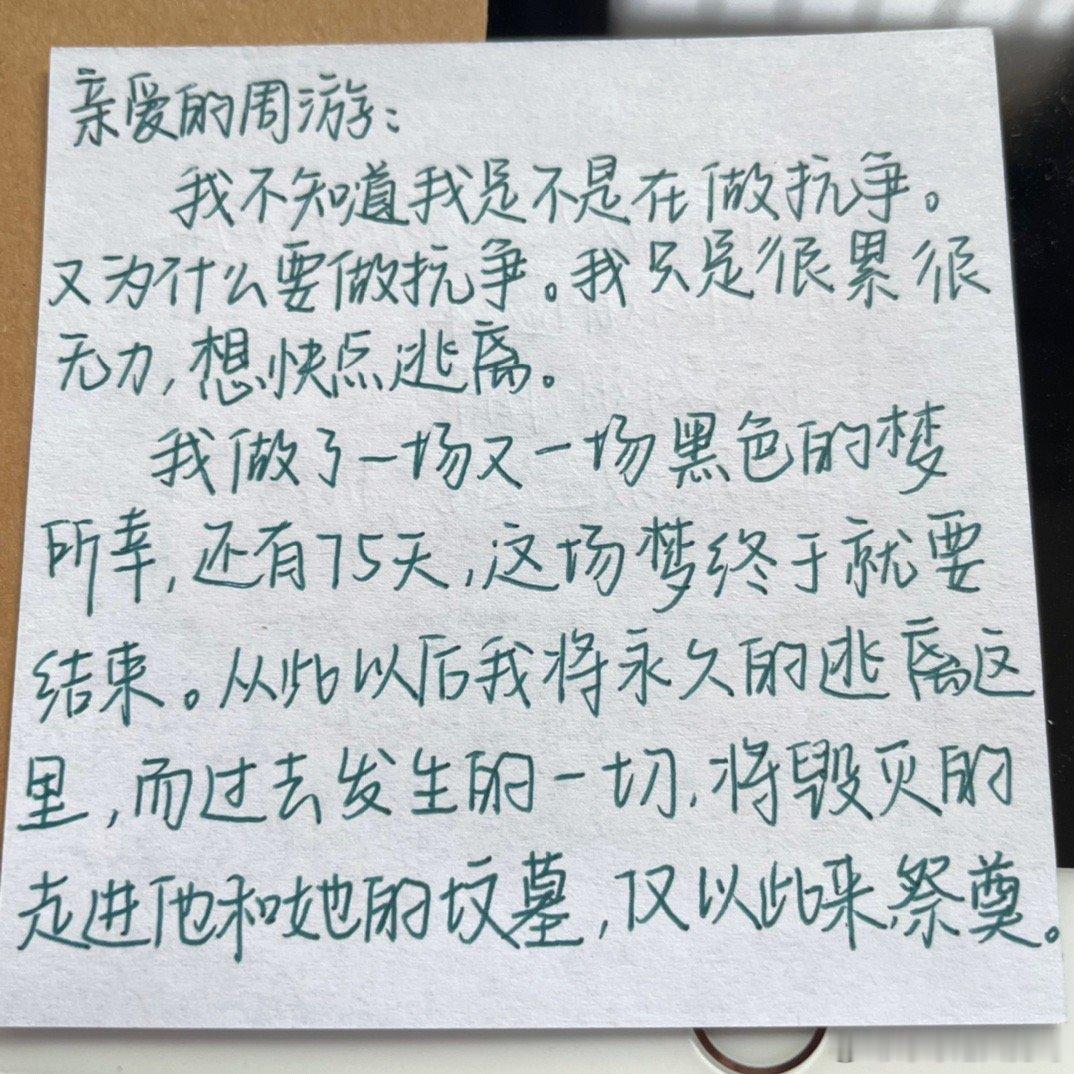 亲爱的周游：
我不知道我是不是在做抗争。
又为什么要做抗争。我只是很累很
无力,想快点逃离。
我做了一场又一场黑色的梦
所幸,还有75天,这场梦终于就要
结束。从此以后我将永久的逃离这
里,而过去发生的一切,将毁灭的
走进他和她的坟墓,仅以此来祭奠。